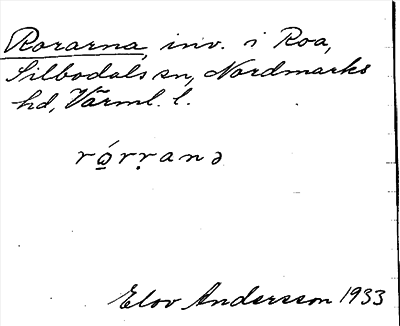 Rorarna, inv. i Roa,
Silbodals sn, Nordmarks
hd, Värml. l.
rώ̲rṛanə
Elov Andersson 1933